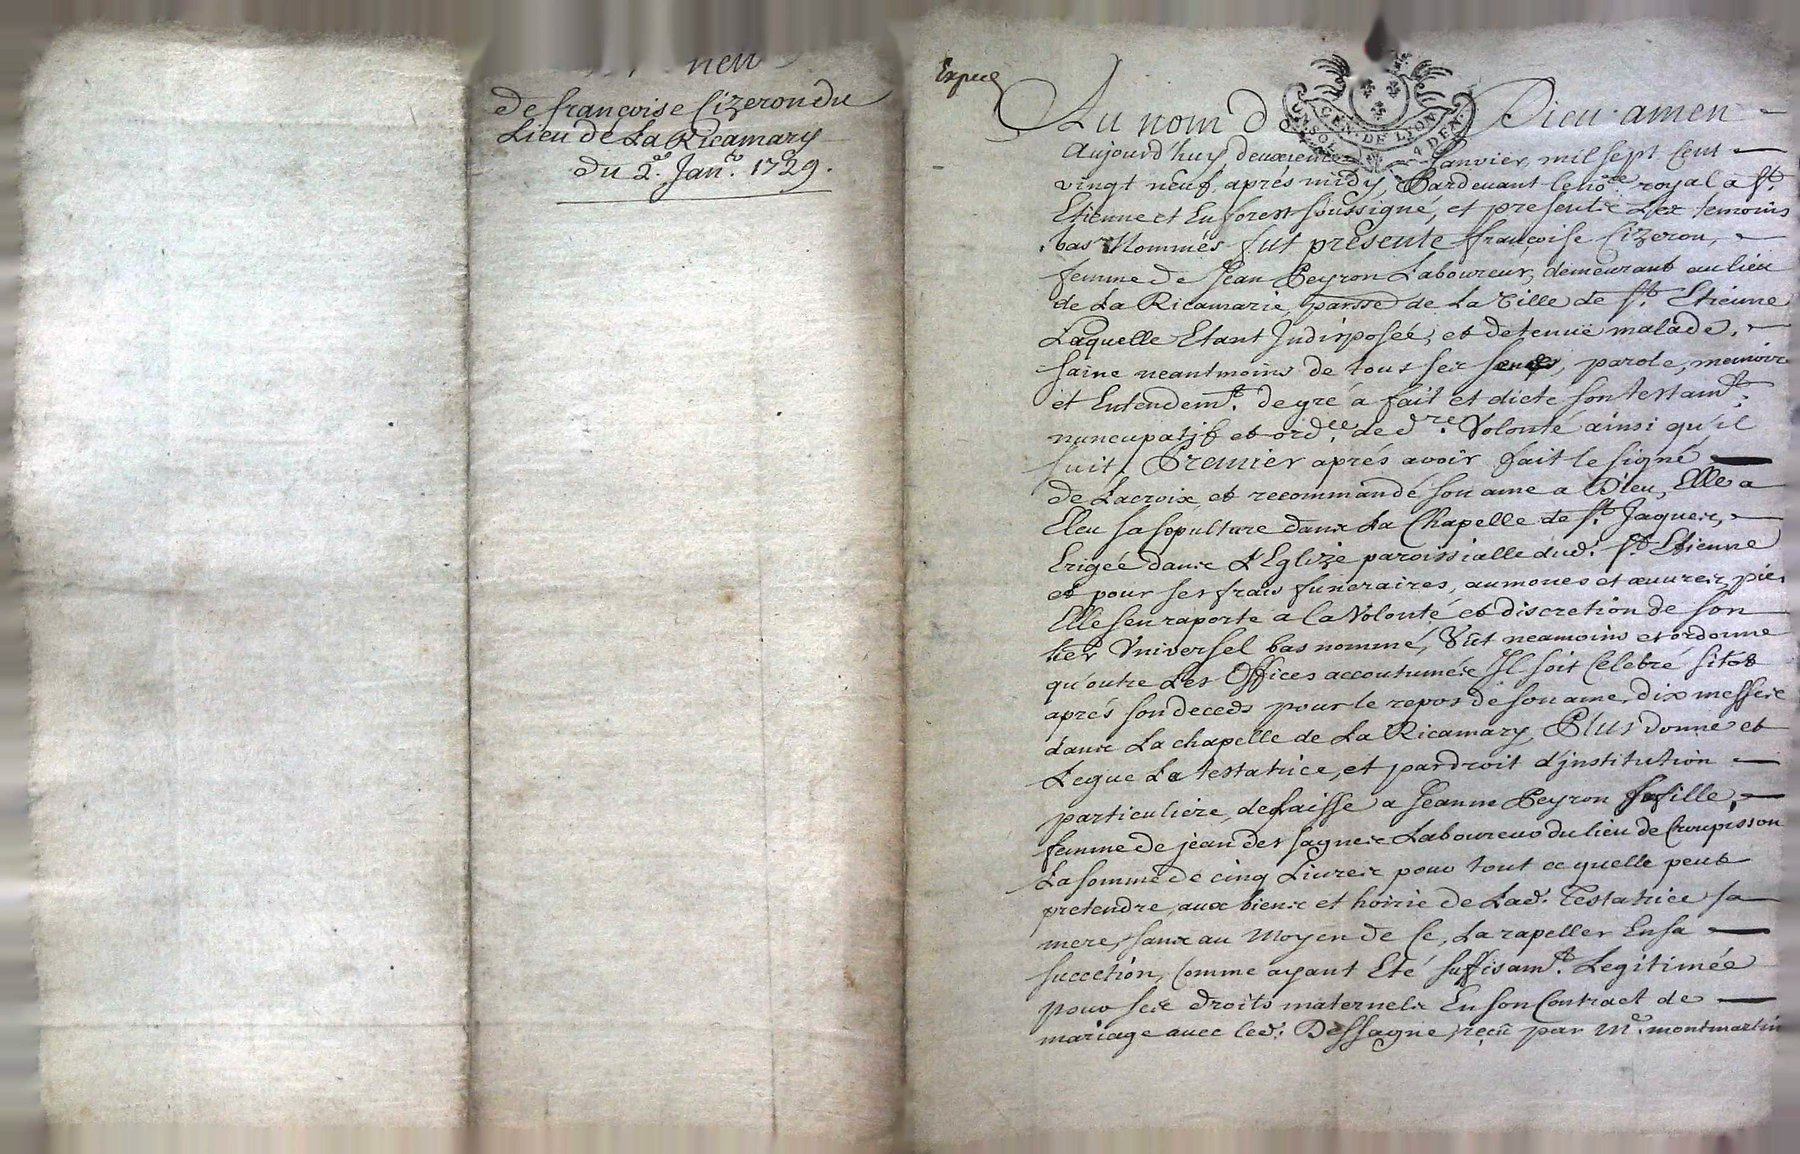 De francoise Cizeron du
Lieu de La Ricamary
Du 2.e Jan.r 1729.
Expié
Au nom de Dieu amen
GEN. DE LYON
4 DEN.
Aujourd'huy deuxieme Janvier, mil sept Cent
vingt neuf, aprés midy, Pardevant le no.re royal a St.
Etienne et En forest soussigné, et presents Les temoins
bas Nommés fut presente francoise Cizeron,
femme de Jean Peyron Laboureur, demeurant au lieu
de La Ricamarie, parrsse de La Ville de St. Etienne
Laquelle Etant Indisposée, et detenuë malade,
saine neantmoins de tous ses sens, parole, memoire
et Entendem.t de gré a fait et dicté son testam.t
nuncupatif et ord.ce de d.re Volonté ainsi qu'il
suit. Premier aprés avoir fait le signé
de Lacroix, et recommandé son ame a Dieu, Elle a
Eleu sa sopulture dans La Chapelle de St. Jaques,
Erigéé dans L'Eglize paroissialle dud. St. Etienne
et pour ses frais funeraires, aumones et œuvres pies
Elle s'en raporte a la Volonté et discretion de son
her Vniversel bas nommé, Vut neamoins et ordonne
qu'outre Les Offices accoutumés Il soit Celebré sitot
aprés son deceds pour le repos de son ame, dix messes
dans La chapelle de La Ricamary, Plus donne et
Legue La testatrice, et par droit d'jnstitution
particuliere, delaisse a Jeanne Peyron sa fille,
femme de jean des sagnes Laboureur du lieu de Croupisson
La somme de cinq Livres pour tout ce quelle peut
pretendre, aux biens et hoirie de Lad. Testatrice sa
mere, sans au Moyen de Ce, La rapeller En sa
succetion, Comme ayant Eté suffisam.t Legitiméé
pour ses droits maternels En son Contract de
mariage avec led. Dessagne, reçû par M.e montmartin